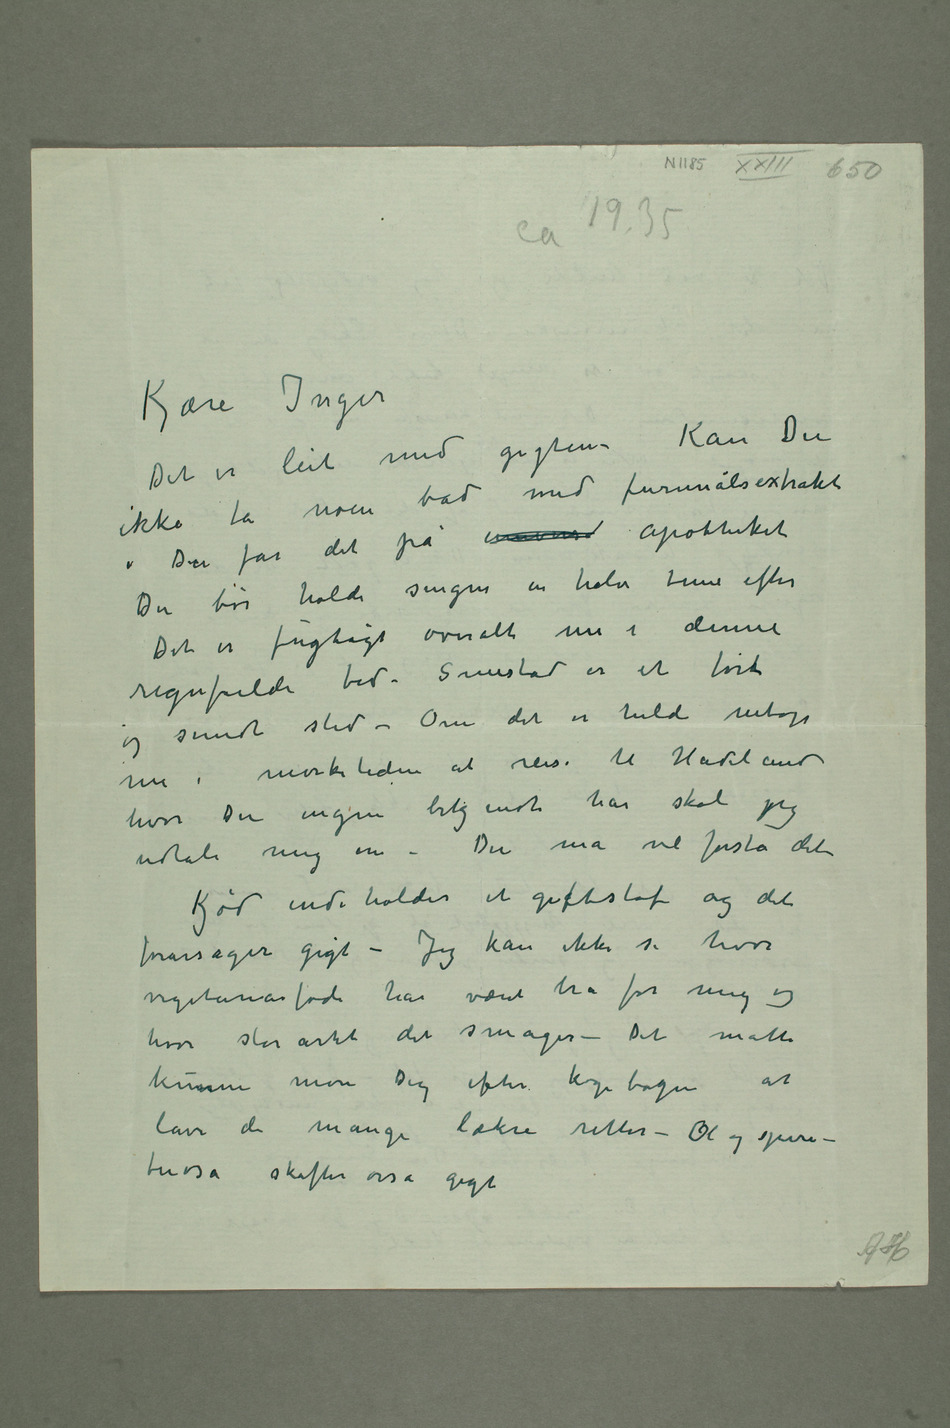 N1185 XXIII 650
ca 19.35
Kjære Inger
Det er leit med gigten – Kan Du
ikke ta noen bad med furunålsextrakt
Du får det på apotheket
Du bør holde sengen en halv time efter
Det er fugtigt overalt nu i denne
regnfulde tid – Smestad er et tørt
og sundt sted – Om det er heldi netop
nu i mørketiden at reise til Hadeland
hvor Du ingen bekjendte har skal jeg
udtale mig om – Du må vel forstå det
Kjød indeholder et giftstof og det
forårsager gigt – Jeg kan ikke se hvor
vegetariasføde har været bra for mig og
hvor storartet det smager – Det måtte
kunne more Dig efter kogebogen at
lave de mange lækre retter – Øl og spiri–
tuosa skaffer også gigt